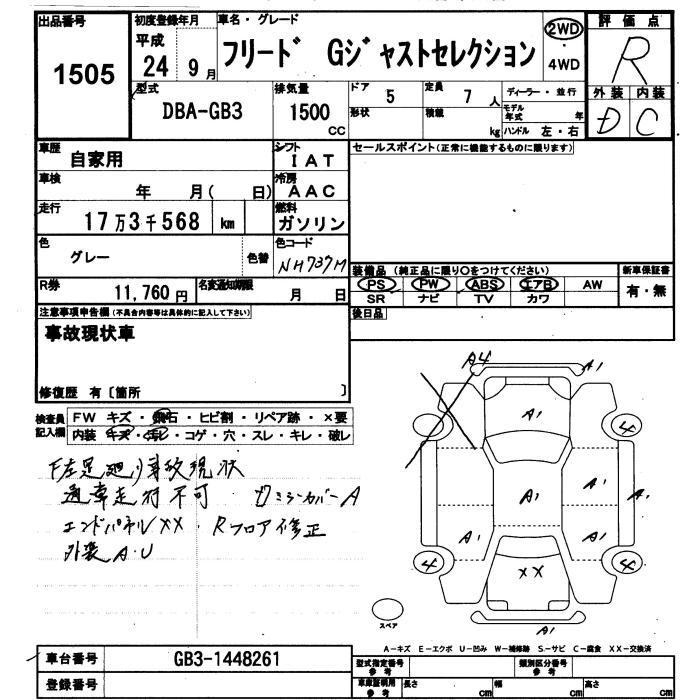 出品番号
1505
初度登録年月
平成
24 9月
車名・グレード
フリード Gジャストセレクション
2WD
・
4WD
評価点
R
外装 内装
D C
型式
DBA-GB3
排気量
1500
CC
ドア 5
定員 7 人
形状
積載 kg
ディーラー・並行
モデル年式 年
ハンドル 左・右
車歴
自家用
シフト
IAT
車検
年 月( 日)
冷房
AAC
走行
17万3千568 km
燃料
ガソリン
色
グレー
色替
色コード
NH737M
R券
11,760円
名変通知期限
月 日
セールスポイント(正常に機能するものに限ります)
装備品 (純正品に限り〇をつけてください)
PS PW ABS エアB AW
SR ナビ TV カワ
新車保証書
有・無
後日品
注意事項申告欄 (不具合内容等は具体的に記入して下さい)
事故現状車
修復歴 有〔箇所 〕
検査員記入欄
FW キズ・飛石・ヒビ割・リペア跡・×要
内装 キズ・汚レ・コゲ・穴・スレ・キレ・破レ
F左足廻り事故現状
通常走行不可 ミラーカバーA
エンドパネルXX・Rフロア修正
外装A・U
A4
A1
A1
4
A1
A1
A1
A1
A1
4
4
XX
A1
スペア
A-キズ E-エクボ U-凹み W-補修跡 S-サビ C-腐食 XX-交換済
車台番号
GB3-1448261
登録番号
型式指定番号
参考
類別区分番号
参考
車庫証明用
参考
長さ cm
幅 cm
高さ cm